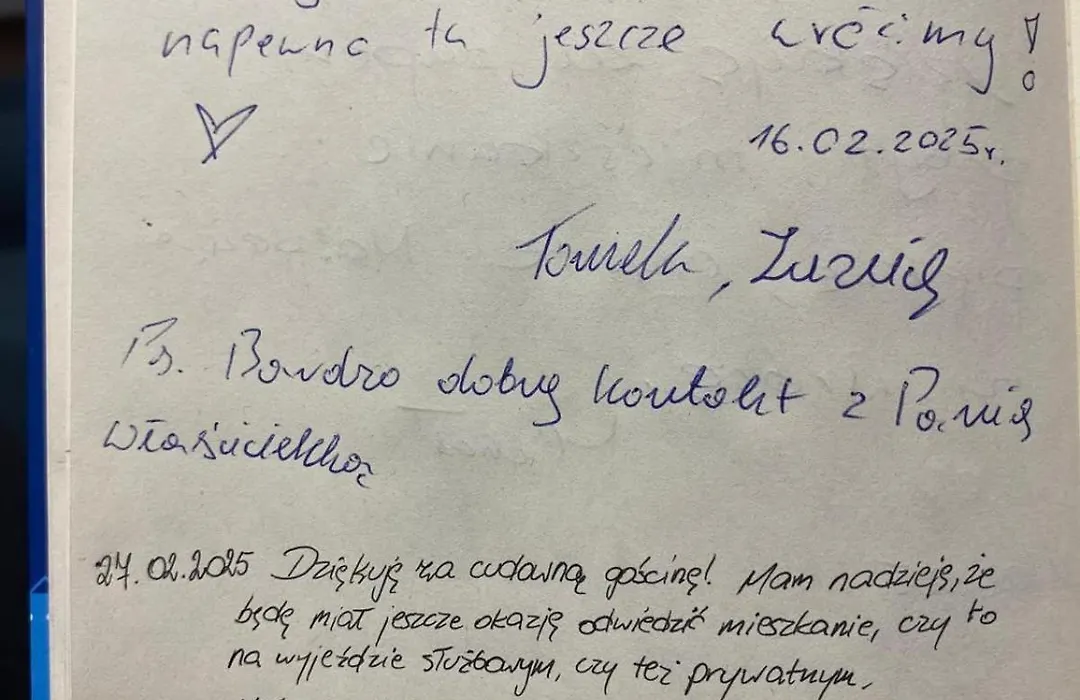 napewno tu jeszcze wrócimy!
16.02.2025r.
Zuzia
Ps. Bardzo dobry kontakt z Panią
właścicielką
27.02.2025 Dziękuję za cudowną gościnę! Mam nadzieję, że
będę miał jeszcze okazję odwiedzić mieszkanie, czy to
na wyjeździe służbowym, czy też prywatnym.